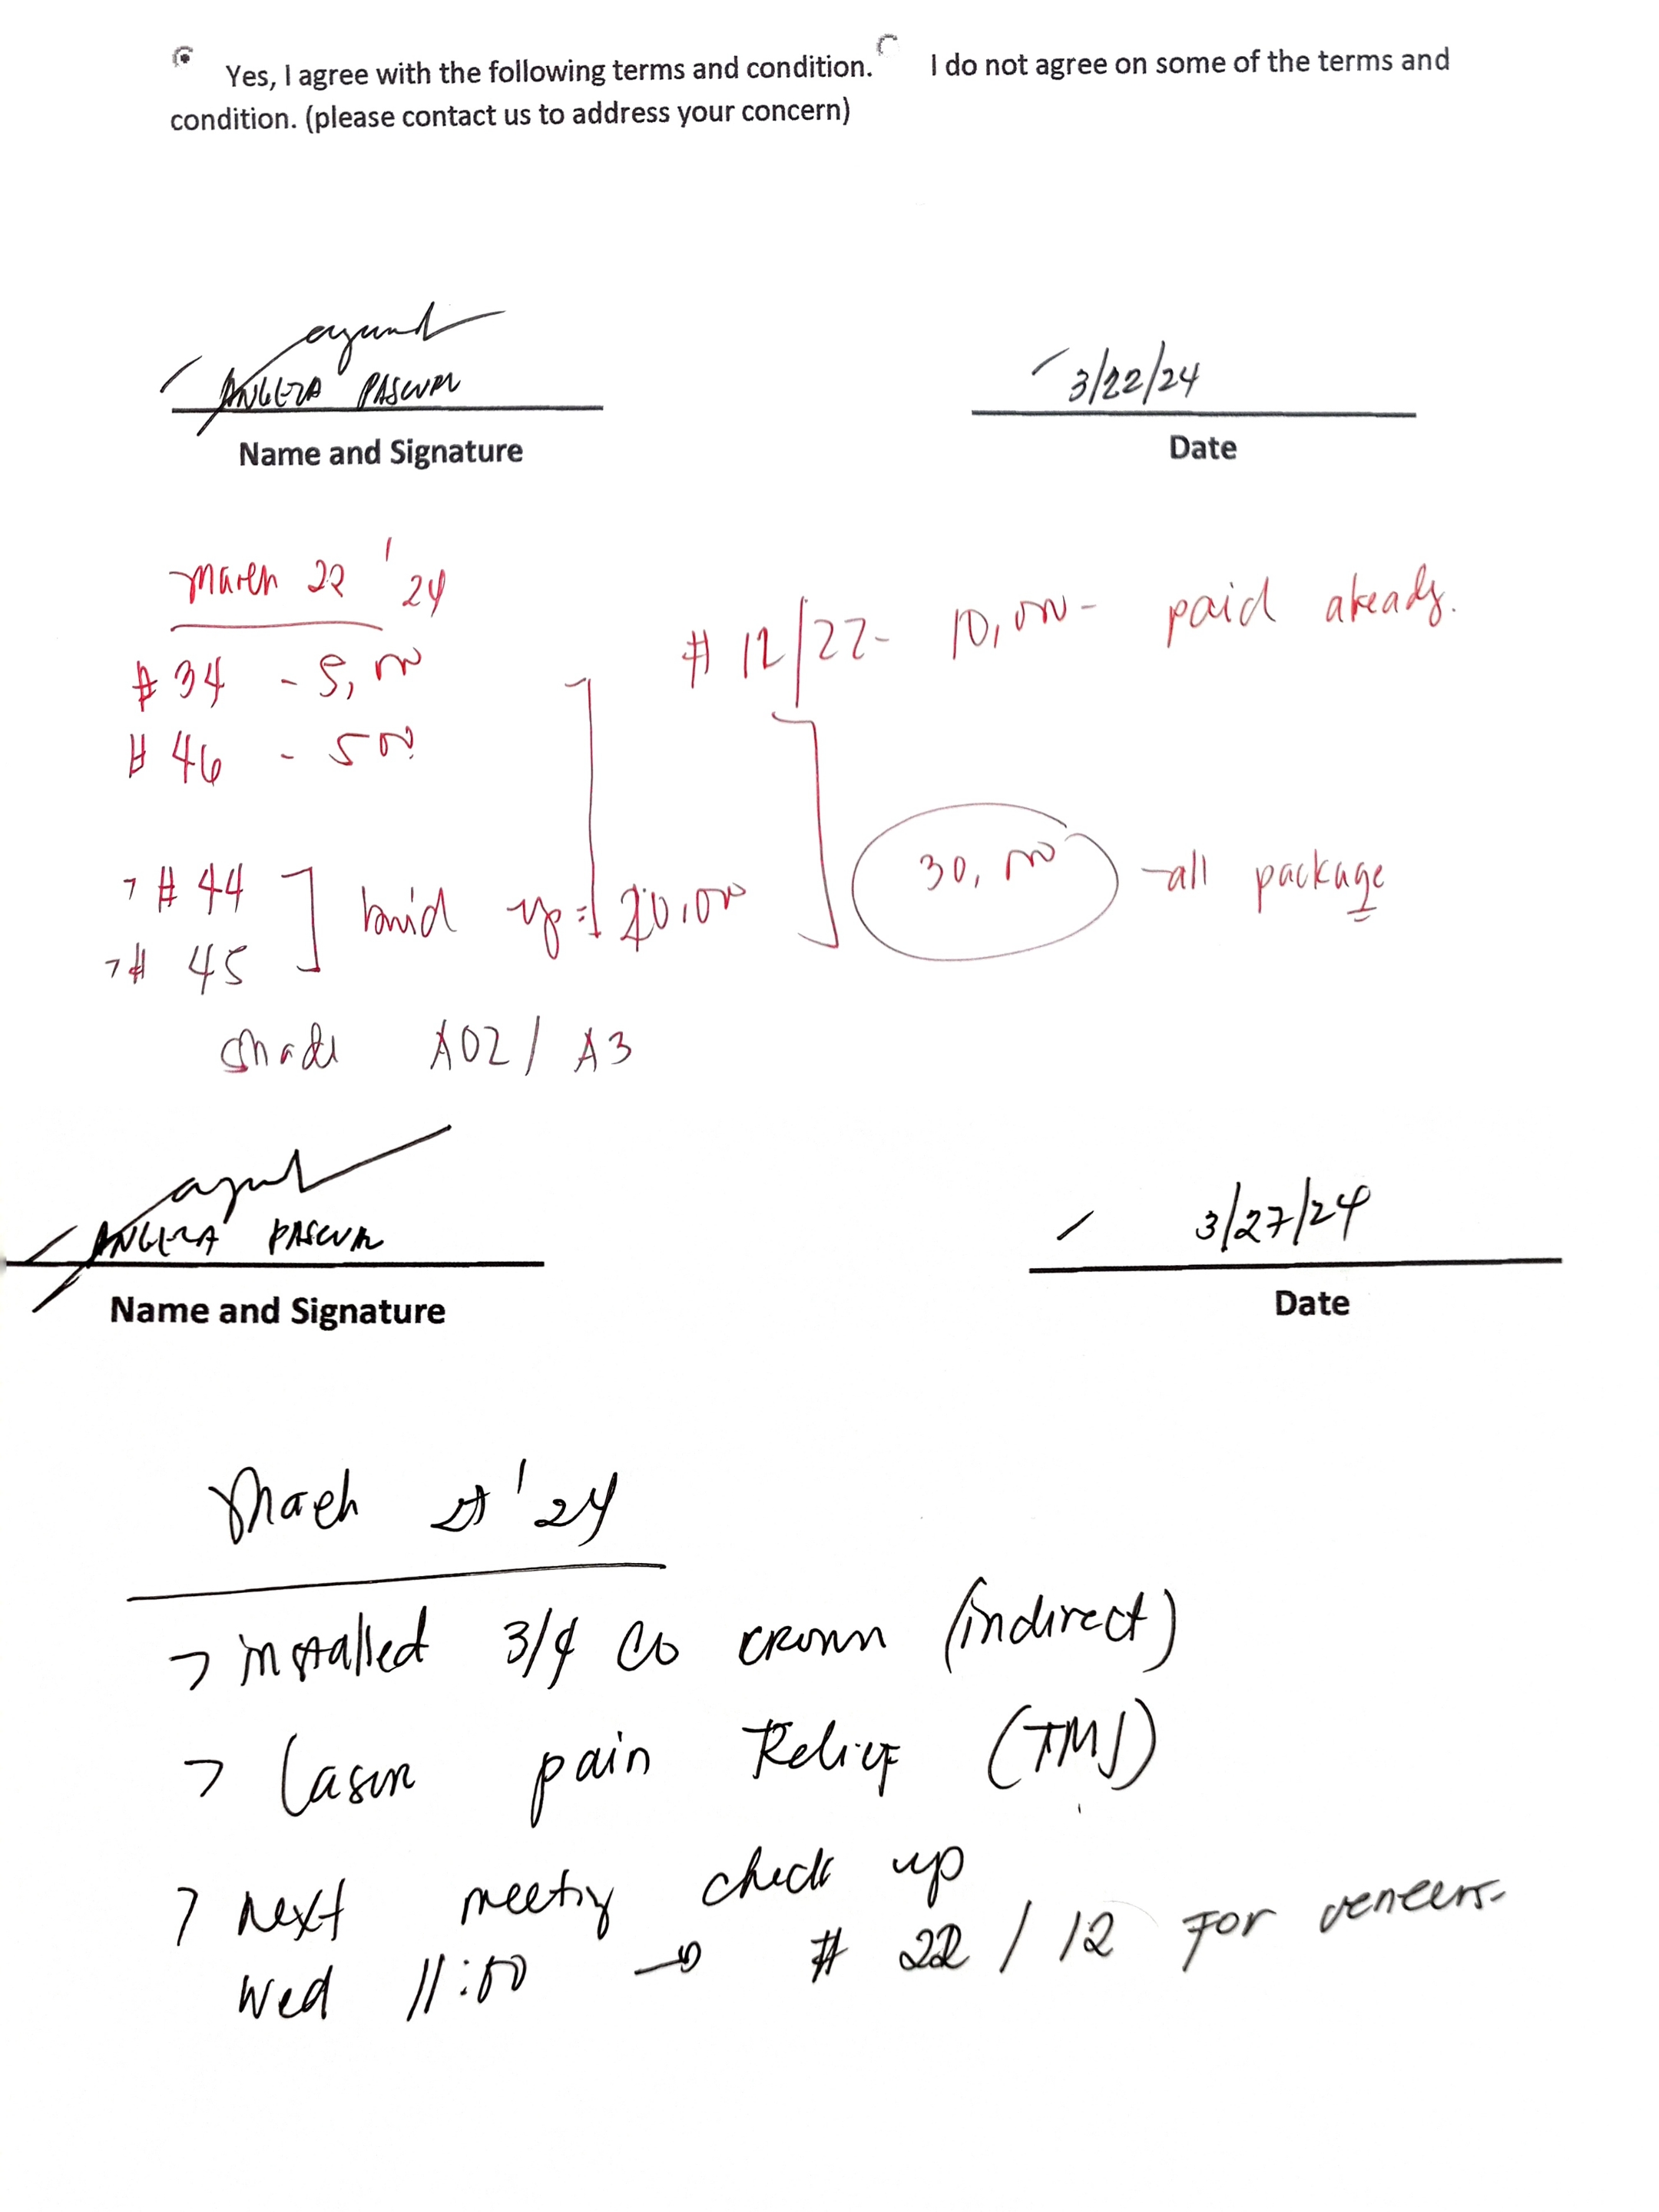 Yes, I agree with the following terms and condition. I do not agree on some of the terms and
condition. (please contact us to address your concern)
ANGELA PASCUAL 3/22/24
Name and Signature Date
March 22 '24
# 12/22 - 10,000 - paid already.
# 34 - 5,000
# 46 - 500
30,000 - all package
# 44
up = 20,000
# 45
Shade A02 / A3
ANGELA PASCUAL 3/27/24
Name and Signature Date
March 27 '24
installed 3/4 crown (indirect)
Laser pain Relief (TMJ)
next meeting check up
Wed 11:00 → # 22 / 12 For veneers-